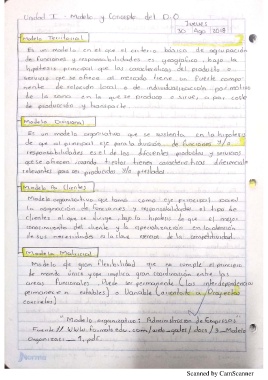 Unidad I - Modelo y Concepto del D.O
Jueves
30 Ago 2018
Modelo Territorial
Es un modelo en el que el criterio básico de agrupación
de funciones y responsabilidades es geográfico, bajo la
hipótesis principal que las características del producto o
servicio que se ofrece al mercado tiene un fuerte compo-
nente de relación local, o de individualización por motivos
de la zona en la que se produce o sirve, o por coste
de producción y transporte.
Modelo Divisional
Es un modelo organizativo que se sustenta en la hipótesis
de que el principal eje para la división de funciones y/o
responsabilidades es el de los diferentes productos y servicios
que se ofrecen cuando éstos tienen características diferenciales
relevantes para ser producidos y/o prestados
Modelo Por Clientes
Modelo organizativo que toma como eje principal para
la asignación de funciones y responsabilidades el tipo de
clientes al que se dirige, bajo la hipótesis de que el mejor
conocimiento del cliente y la especialización en la atención
de sus necesidades es la clave de la competitividad.
Modelo Matricial
Modelo de gran flexibilidad que no cumple el principio
de mando único y que implica gran coordinación entre las
áreas funcionales. Puede ser permanente (las interdependencias
permanecen estables) o Variable (orientado a Proyectos
concretos)
"Modelo organizativo: Administración de Empresas"
Fuente// www.
Modelo
Organizac - 1.pdf
Scanned by CamScanner